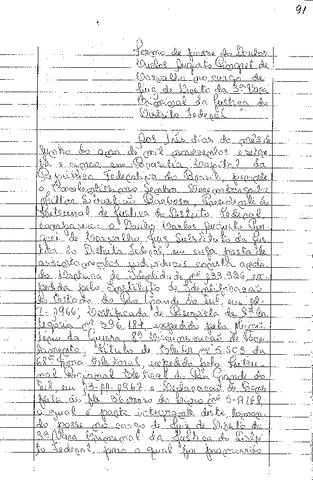 91
Termo de posse do Doutor
Carlos Augusto Pingret de
Carvalho no cargo de
Juiz de Direito da 3ª Vara
Criminal da Justiça do
Distrito Federal
Aos três dias do mês de
junho do ano de mil novecentos e seten
ta e cinco, em Brasília, Capital da
República Federativa do Brasil, perante
o Excelentíssimo Senhor Desembargador
Milton Sebastião Barbosa, Presidente do
Tribunal de Justiça do Distrito Federal,
compareceu o Doutor Carlos Augusto Pin
gret de Carvalho, Juiz Substituto da Jus
tiça do Distrito Federal, em cuja pasta de
assentamentos individuais consta cópia
da Carteira de Identidade nº 239.326, ex-
pedida pelo Instituto de Identificação
do Estado do Rio Grande do Sul, em
1966, Certificado de Reservista de 3ª Ca
tegoria nº expedido pelo Minis
tério da Guerra,
Título de Eleitor nº 5.503 da
Zona Eleitoral, expedido pelo Tribu
nal Regional Eleitoral do Rio Grande do
Sul em 1967 e Declaração de Bens
feita às fls.
a qual é parte integrante deste, toman
do posse no cargo de Juiz de Direito da
3ª Vara Criminal da Justiça do Distri
to Federal, para o qual foi promovido